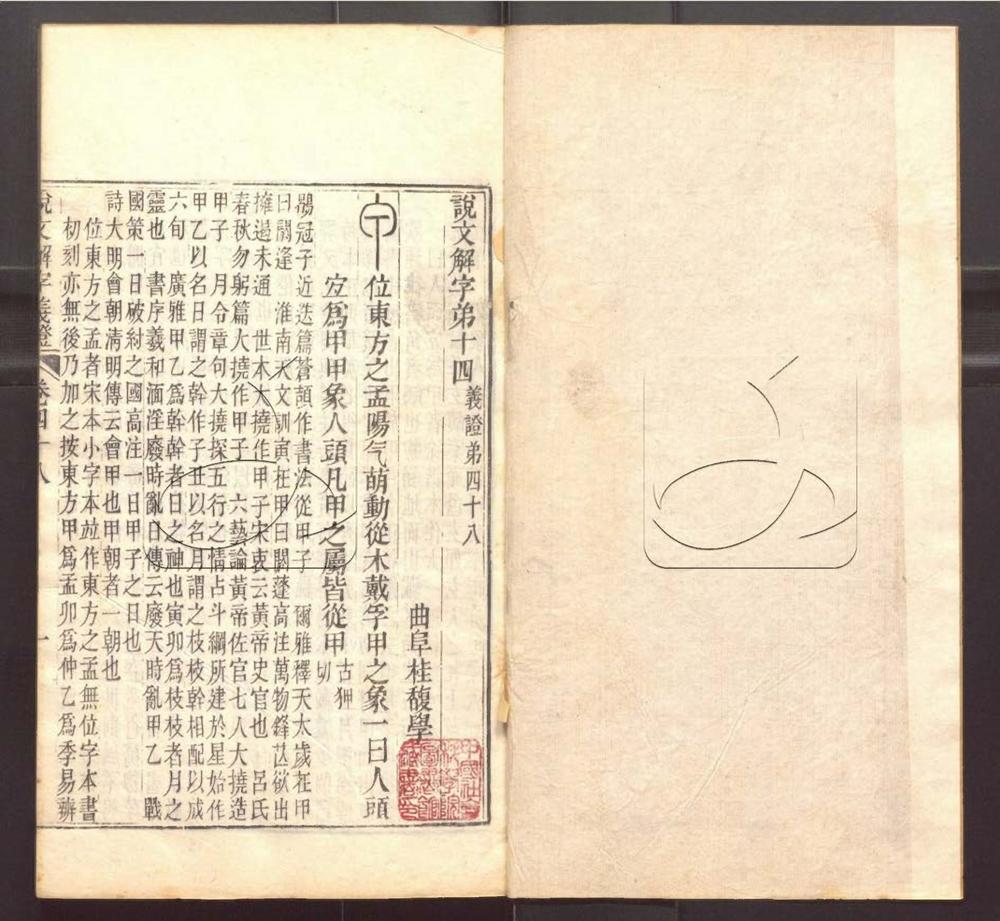 說文解字弟十四 義證弟四十八
曲阜桂馥學
位東方之孟陽气萌動從木戴孚甲之象一曰人頭
宐爲甲甲象人頭凡甲之屬皆從甲 古狎切
鶡冠子近迭篇蒼頡作書法從甲子 爾雅釋天太歲在甲
曰閼逢 淮南天文訓寅在甲曰閼蓬高注萬物鋒芒欲出
擁遏未通 世本大撓作甲子宋衷云黃帝史官也 呂氏
春秋勿躬篇大撓作甲子 六藝論黃帝佐官七人大撓造
甲子 月令章句大撓探五行之情占斗綱所建於是始作
甲乙以名日謂之幹作子丑以名月謂之枝枝幹相配以成
六旬 廣雅甲乙爲幹幹者日之神也寅卯爲枝枝者月之
靈也 書序羲和湎淫廢時亂日傳云廢天時亂甲乙 戰
國策一日破紂之國高注一日甲子之日也
詩大明會朝淸明傳云會甲也甲朝者一朝也
位東方之孟者宋本小字本竝作東方之孟無位字本書
初刻亦無後乃加之按東方甲爲孟卯爲仲乙爲季易辨
說文解字義證 卷四十八 一